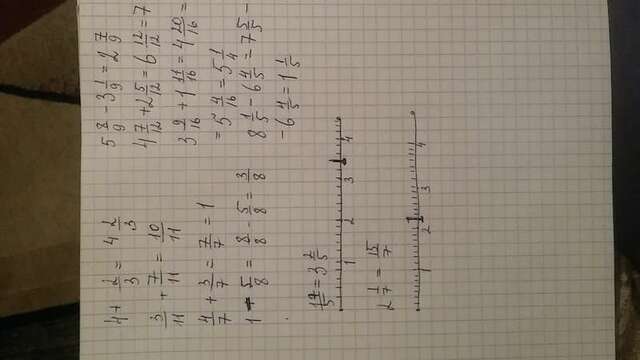 4 + 2/3 = 4 2/3
3/11 + 7/11 = 10/11
4/7 + 3/7 = 7/7 = 1
1 - 5/8 = 8/8 - 5/8 = 3/8
17/5 = 3 2/5
1 2 3 4
2 1/7 = 15/7
1 2 3 4
5 8/9 - 3 1/9 = 2 7/9
4 7/12 + 2 5/12 = 6 12/12 = 7
3 9/16 + 1 11/16 = 4 20/16 =
= 5 4/16 = 5 1/4
8 1/5 - 6 4/5 = 7 5/5 -
- 6 4/5 = 1 1/5